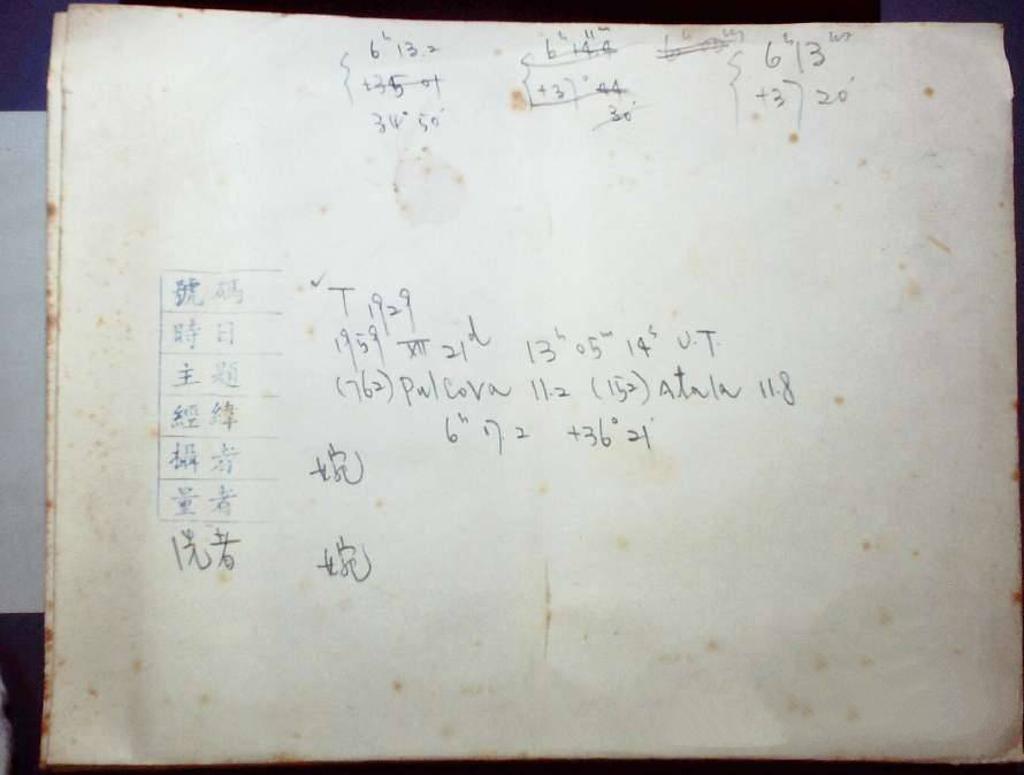 6ʰ 13.2 6ʰ 14ᵐ.4 6ʰ 6ʰ 13ᵐ
+35 01 +37° 44 +37 20′
34° 50′ 30′
號碼 ✓T 1929
時日 1959 XII 21ᵈ 13ʰ 05ᵐ 14ˢ U.T.
主題 (762) Pulcova 11.2 (152) Atala 11.8
經緯 6ʰ 17.2 +36° 21′
攝者 婉
量者
洗者 婉